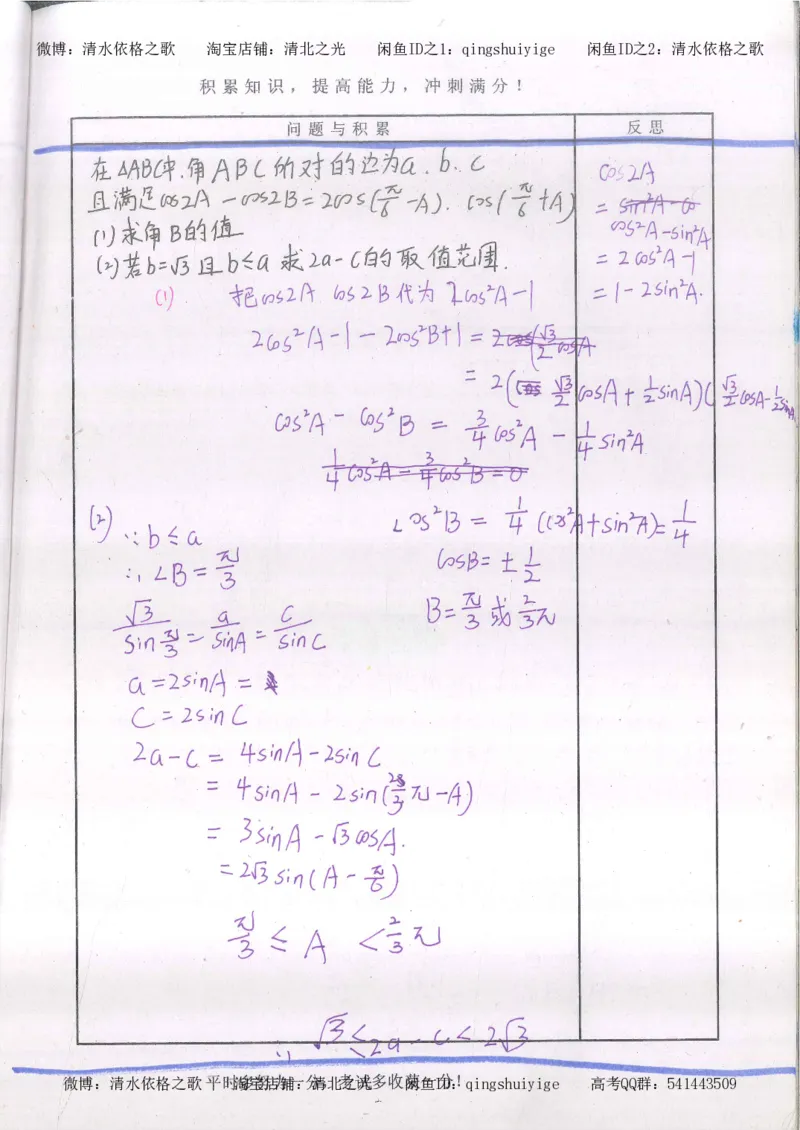 微博：清水依格之歌 淘宝店铺：清北之光 闲鱼ID之1：qingshuiyige 闲鱼ID之2：清水依格之歌
积累知识，提高能力，冲刺满分！
问题与积累 反思
在△ABC中.角ABC所对的边为a.b.c
且满足cos2A-cos2B=2cos(π/6-A).cos(π/6+A)
(1)求角B的值
(2)若b=√3且b≤a求2a-c的取值范围.
cos2A
=sin²A-co
cos²A-sin²A
=2cos²A-1
=1-2sin²A.
(1) 把cos2A cos2B代为2cos²A-1
2cos²A-1-2cos²B+1=2cos(√3/2cosA
=2(cos √3/2cosA+1/2sinA)(√3/2cosA-1/2sinA
cos²A-cos²B=3/4cos²A-1/4sin²A
1/4cos²A-3/4cos²B=0
cos²B=1/4(cos²A+sin²A)=1/4
cosB=±1/2
B=π/3或2/3π
(2) ∵b≤a
∴∠B=π/3
√3/sinπ/3=a/sinA=c/sinC
a=2sinA=
c=2sinC
2a-c=4sinA-2sinC
=4sinA-2sin(2/3π-A)
=3sinA-√3cosA.
=2√3sin(A-π/6)
π/3≤A<2/3π
∵√3≤2a-c<2√3
微博：清水依格之歌 淘宝店铺：清北之光 闲鱼ID：qingshuiyige 高考QQ群：541443509